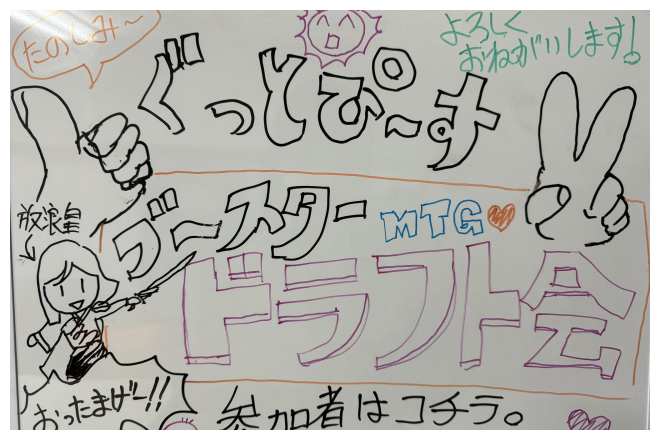 たのしみ～
よろしく
おねがいします!
ぐっとぴ～す
放浪皇
ブースター
MTG
ドラフト会
おったまげー!!
参加者はコチラ。